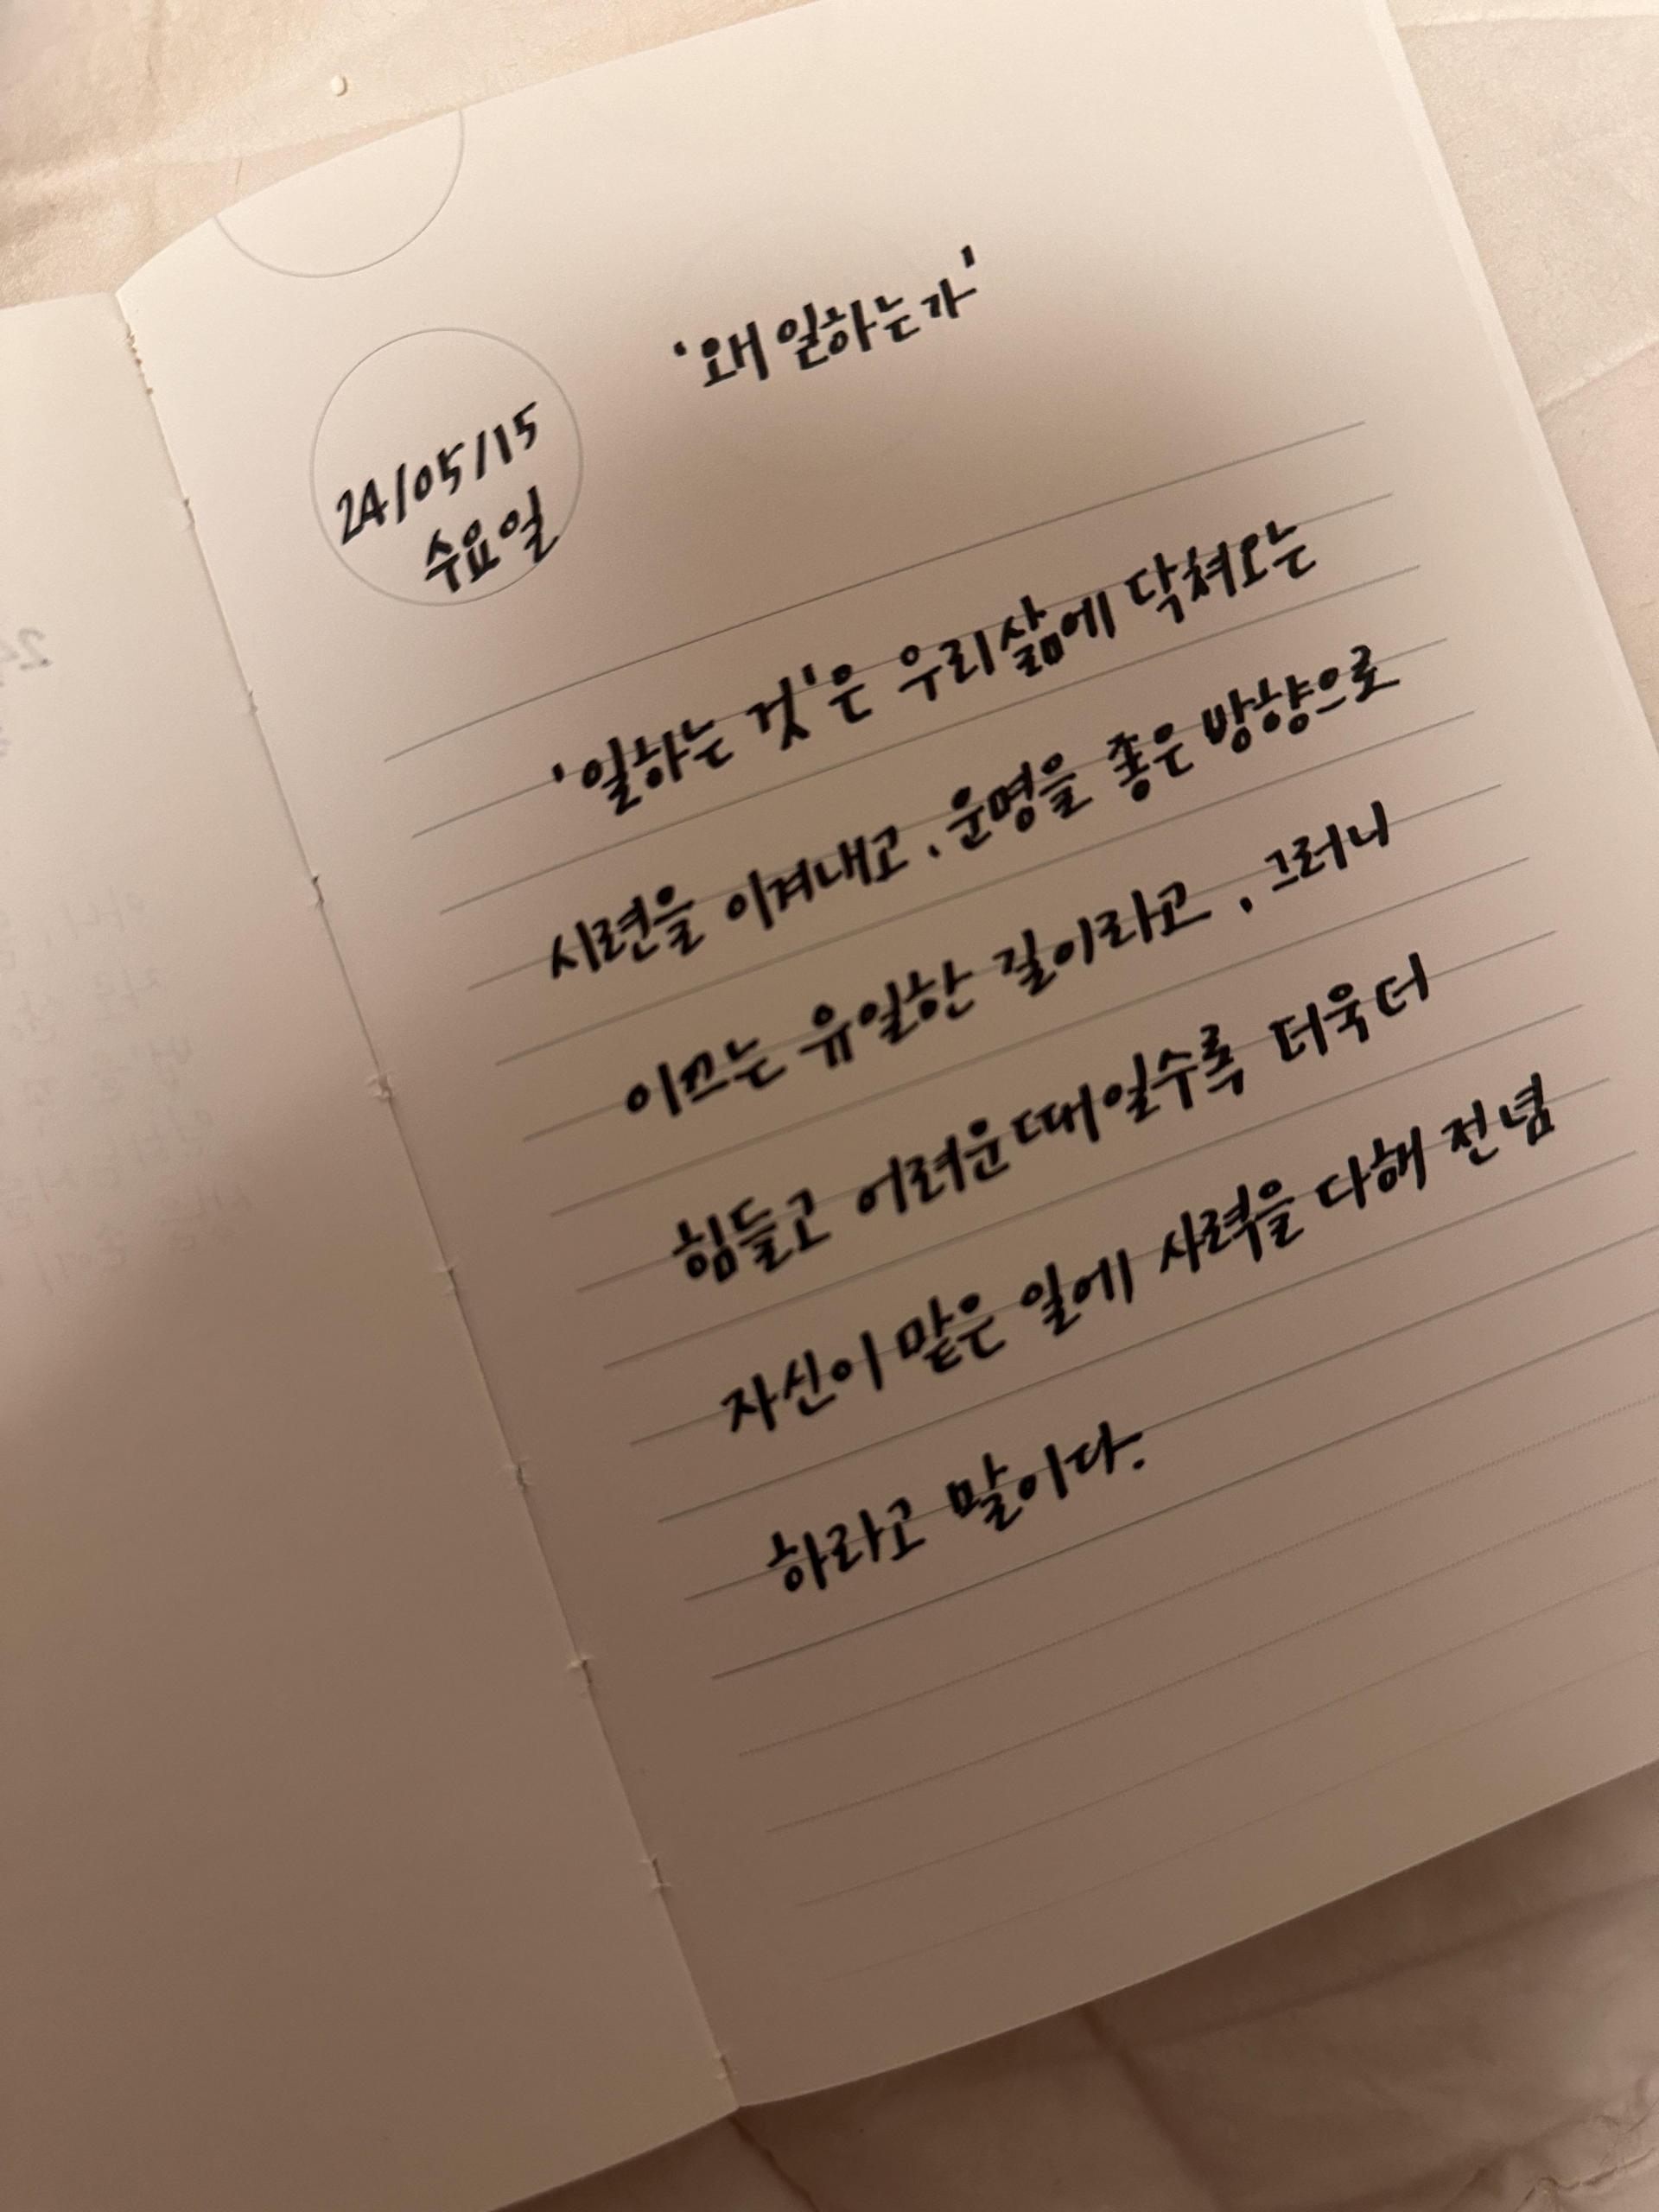 '왜 일하는가'
24/05/15
수요일
'일하는 것'은 우리삶에 닥쳐오는
시련을 이겨내고, 운명을 좋은 방향으로
이끄는 유일한 길이라고, 그러니
힘들고 어려운때일수록 더욱더
자신이 맡은 일에 사력을 다해 전념
하라고 말이다.